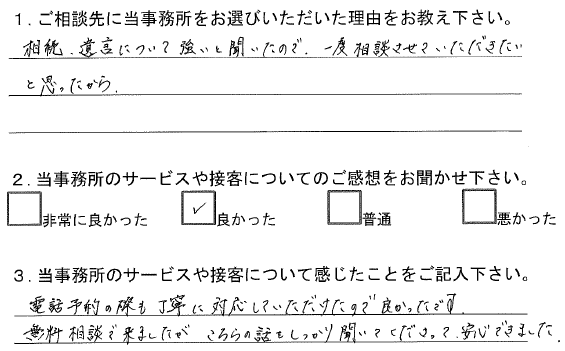 1．ご相談先に当事務所をお選びいただいた理由をお教え下さい。
相続、遺言について強いと聞いたので、一度相談させていただきたい
と思ったから。
2．当事務所のサービスや接客についてのご感想をお聞かせ下さい。
非常に良かった ✓ 良かった 普通 悪かった
3．当事務所のサービスや接客について感じたことをご記入下さい。
電話予約の際も丁寧に対応していただけたので良かったです。
無料相談で来ましたが、こちらの話もしっかり聞いてくださって、安心できました。